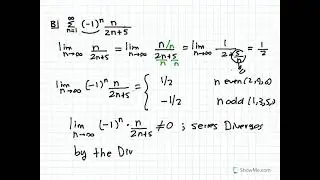 B) ∞ Σ n=1 (-1)^n n/(2n+5)
lim n→∞ n/(2n+5) = lim n→∞ (n/n)/(2n/n + 5/n) = lim n→∞ 1/(2 + 5/n) = 1/2
lim n→∞ (-1)^n n/(2n+5) = { 1/2 n even (2,4,6)
-1/2 n odd (1,3,5,
lim n→∞ (-1)^n · n/(2n+5) ≠ 0 ; series Diverges
by the Div
ShowMe.com